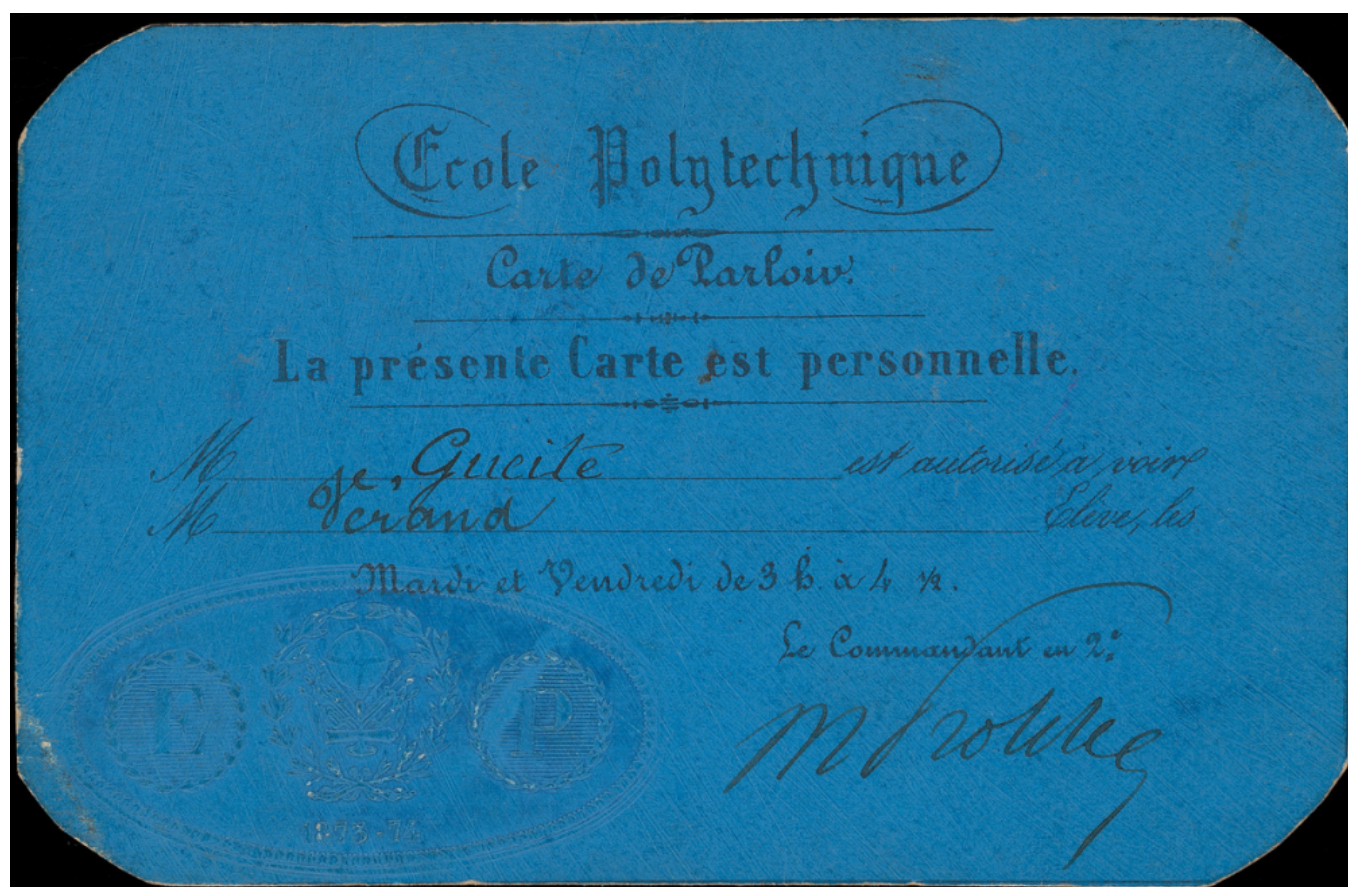 École Polytechnique
Carte de Parloir.
La présente Carte est personnelle.
M Gueité est autorisé à voir
M Verand Élève, les
Mardi et Vendredi de 3 h. à 4 ½.
Le Commandant en 2e
E P
1873-74